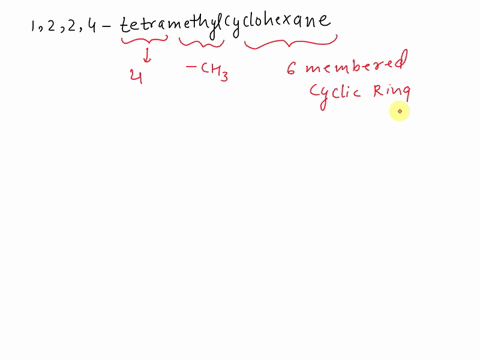 1,2,2,4 - tetramethylcyclohexane
4 -CH3 6 membered
Cyclic Ring